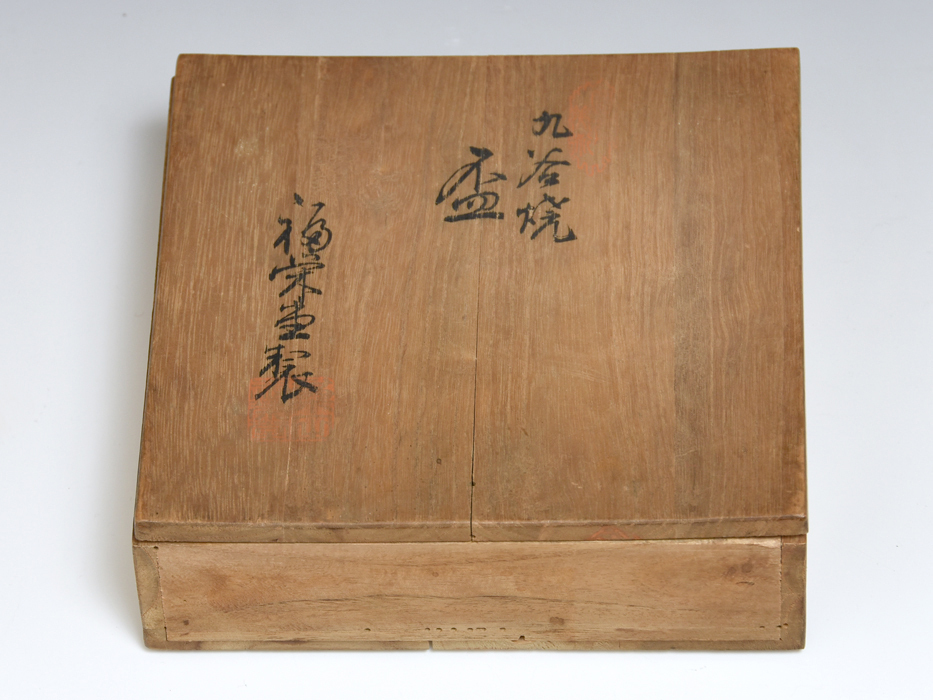 九谷焼
盃
福宗堂製